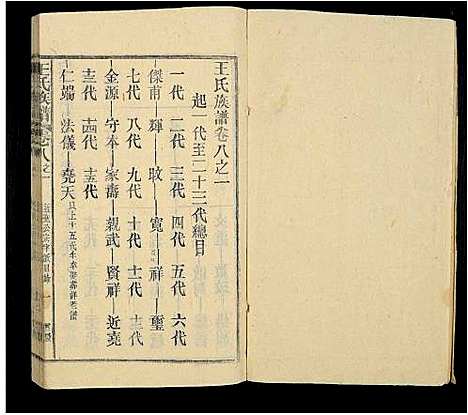 王氏族譜卷八之一
起一代至二十三代總目
一代 二代 三代 四代 五代 六代
傑甫—輝—旼—寬—祥—璽
七代 八代 九代 十代 十一代 十二代
金源—守本—家壽—親武—賢祥—近堯
十三代 十四代 十五代
仁端—法儀—堯天
王氏族譜 卷八之一